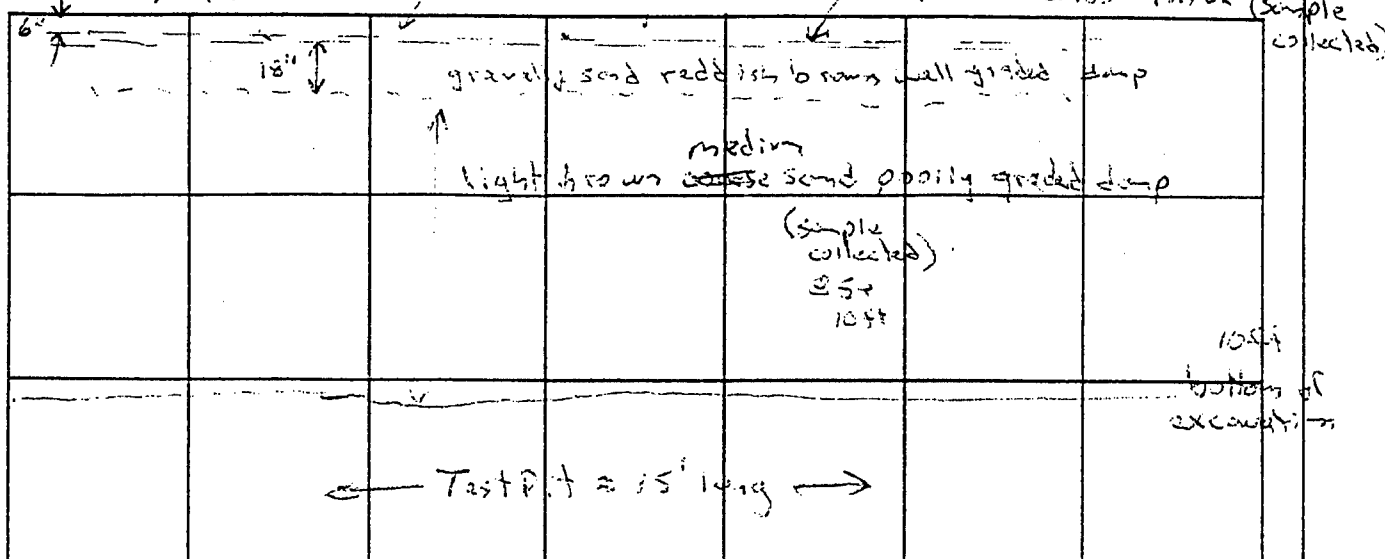 (sample
collected)
6"
18"
gravely sand reddish brown well graded damp
medium
light brown coarse sand poorly graded damp
(sample
collected)
10 ft
10 ft
bottom of
excavation
Test Pit ≈ 15' long